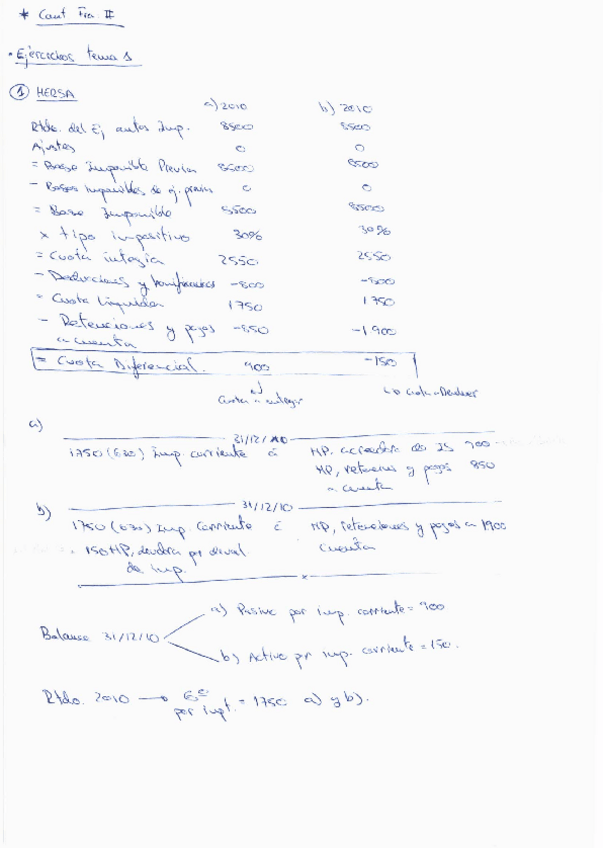 * Cont Fra. II
• Ejercicios tema 1
① HERSA
a) 2010 b) 2010
Rtdo. del Ej antes Imp. 8500 8500
Ajustes 0 0
= Base Imponible Previa 8500 8500
- Bases imponibles de ej. previos 0 0
= Base Imponible 8500 8500
x tipo impositivo 30% 30%
= Cuota íntegra 2550 2550
- Deducciones y bonificaciones -800 -800
= Cuota Líquida 1750 1750
- Retenciones y pagos a cuenta -850 -1900
= Cuota Diferencial. 900 -150
Cuota a ingresar Cuota a Devolver
a)
31/12/10
1750 (630) Imp. corriente a HP. acreedora de IS 900
HP, retenciones y pagos 850
a cuenta
b)
31/12/10
1750 (630) Imp. Corriente a HP, retenciones y pagos a 1900
150 HP, deudora por devol. cuenta
de imp.
a) Pasivo por imp. corriente = 900
Balance 31/12/10
b) Activo por imp. corriente = 150.
Rtdo. 2010 → Gº = 1750 a) y b).
por impt.